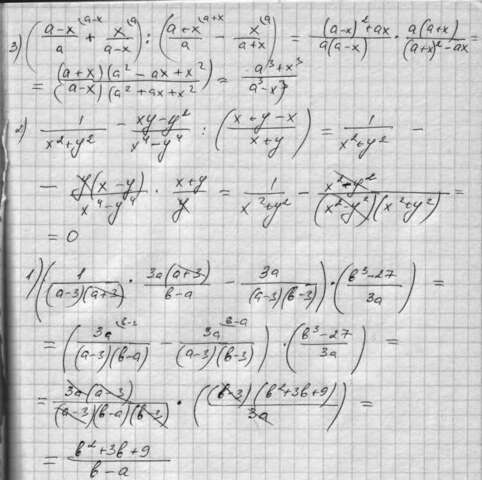 3) ((a-x)/a^(a-x) + x/(a-x)^(a)) : ((a+x)/a^(a+x) - x/(a+x)^(a)) = ((a-x)²+ax)/(a(a-x)) · (a(a+x))/((a+x)²-ax) =
= ((a+x)(a²-ax+x²))/((a-x)(a²+ax+x²)) = (a³+x³)/(a³-x³)
2) 1/(x²+y²) - (xy-y²)/(x⁴-y⁴) : ((x+y-x)/(x+y)) = 1/(x²+y²) -
- (y(x-y))/(x⁴-y⁴) · (x+y)/y = 1/(x²+y²) - (x²-y²)/((x²-y²)(x²+y²)) =
= 0
1) (1/((a-3)(a+3)) · (3a(a+3))/(b-a) - 3a/((a-3)(b-3))) · ((b³-27)/(3a)) =
= (3a^(b-3)/((a-3)(b-a)) - 3a^(b-a)/((a-3)(b-3))) · ((b³-27)/(3a)) =
= (3a(a-3))/((a-3)(b-a)(b-3)) · (((b-3)(b²+3b+9))/(3a)) =
= (b²+3b+9)/(b-a)